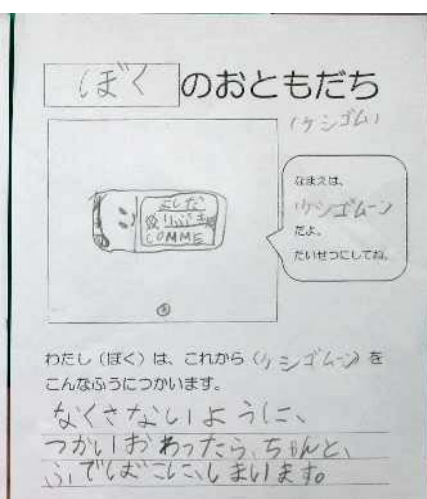 ぼくのおともだち
(ケシゴム)
なまえは、
ケシゴムーン
だよ。
たいせつにしてね。
COMME
わたし(ぼく)は、これから(ケシゴムーン)を
こんなふうにつかいます。
なくさないように、
つかいおわったら、ちゃんと、
ふでばこに、しまいます。